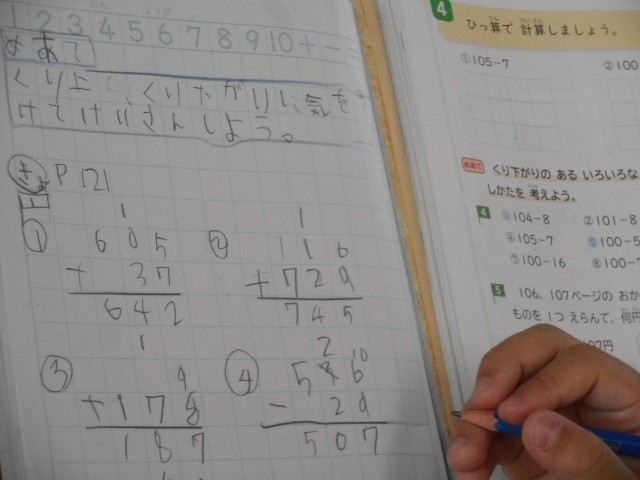 1 2 3 4 5 6 7 8 9 10 + - =
めあて
くり上
くり下がりに気を
けてけいさんしよう。
P 121
①
1
605
+ 37
642
②
1
116
+729
745
③
1
9
+178
187
④
2 10
5 6
- 29
507
4 ひっ算で 計算しましょう。
①105-7
②100
くり下がりの ある いろいろな
しかたを 考えよう。
4 ①104-8 ②101-8
④105-7 ⑤100-5
⑦100-16 ⑧100-7
5 106、107ページの おか
ものを 1つ えらんで、何円
107円